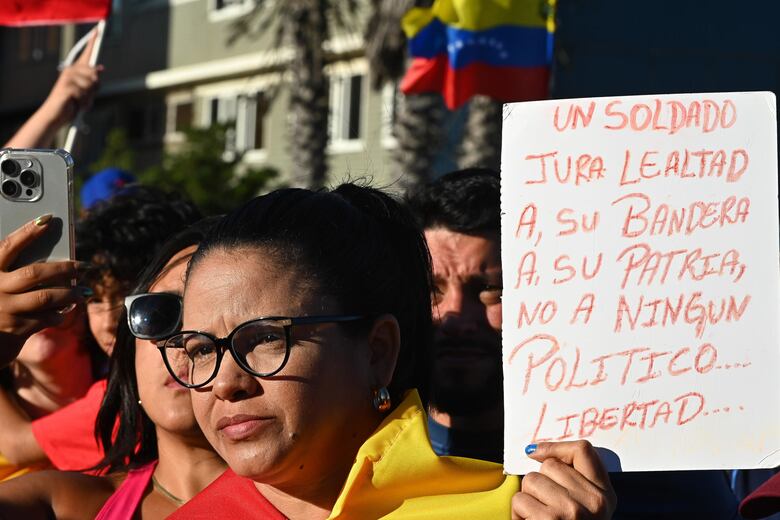 UN SOLDADO
JURA LEALTAD
A, SU BANDERA
A. SU PATRIA,
NO A NINGUN
POLITICO....
LIBERTAD....